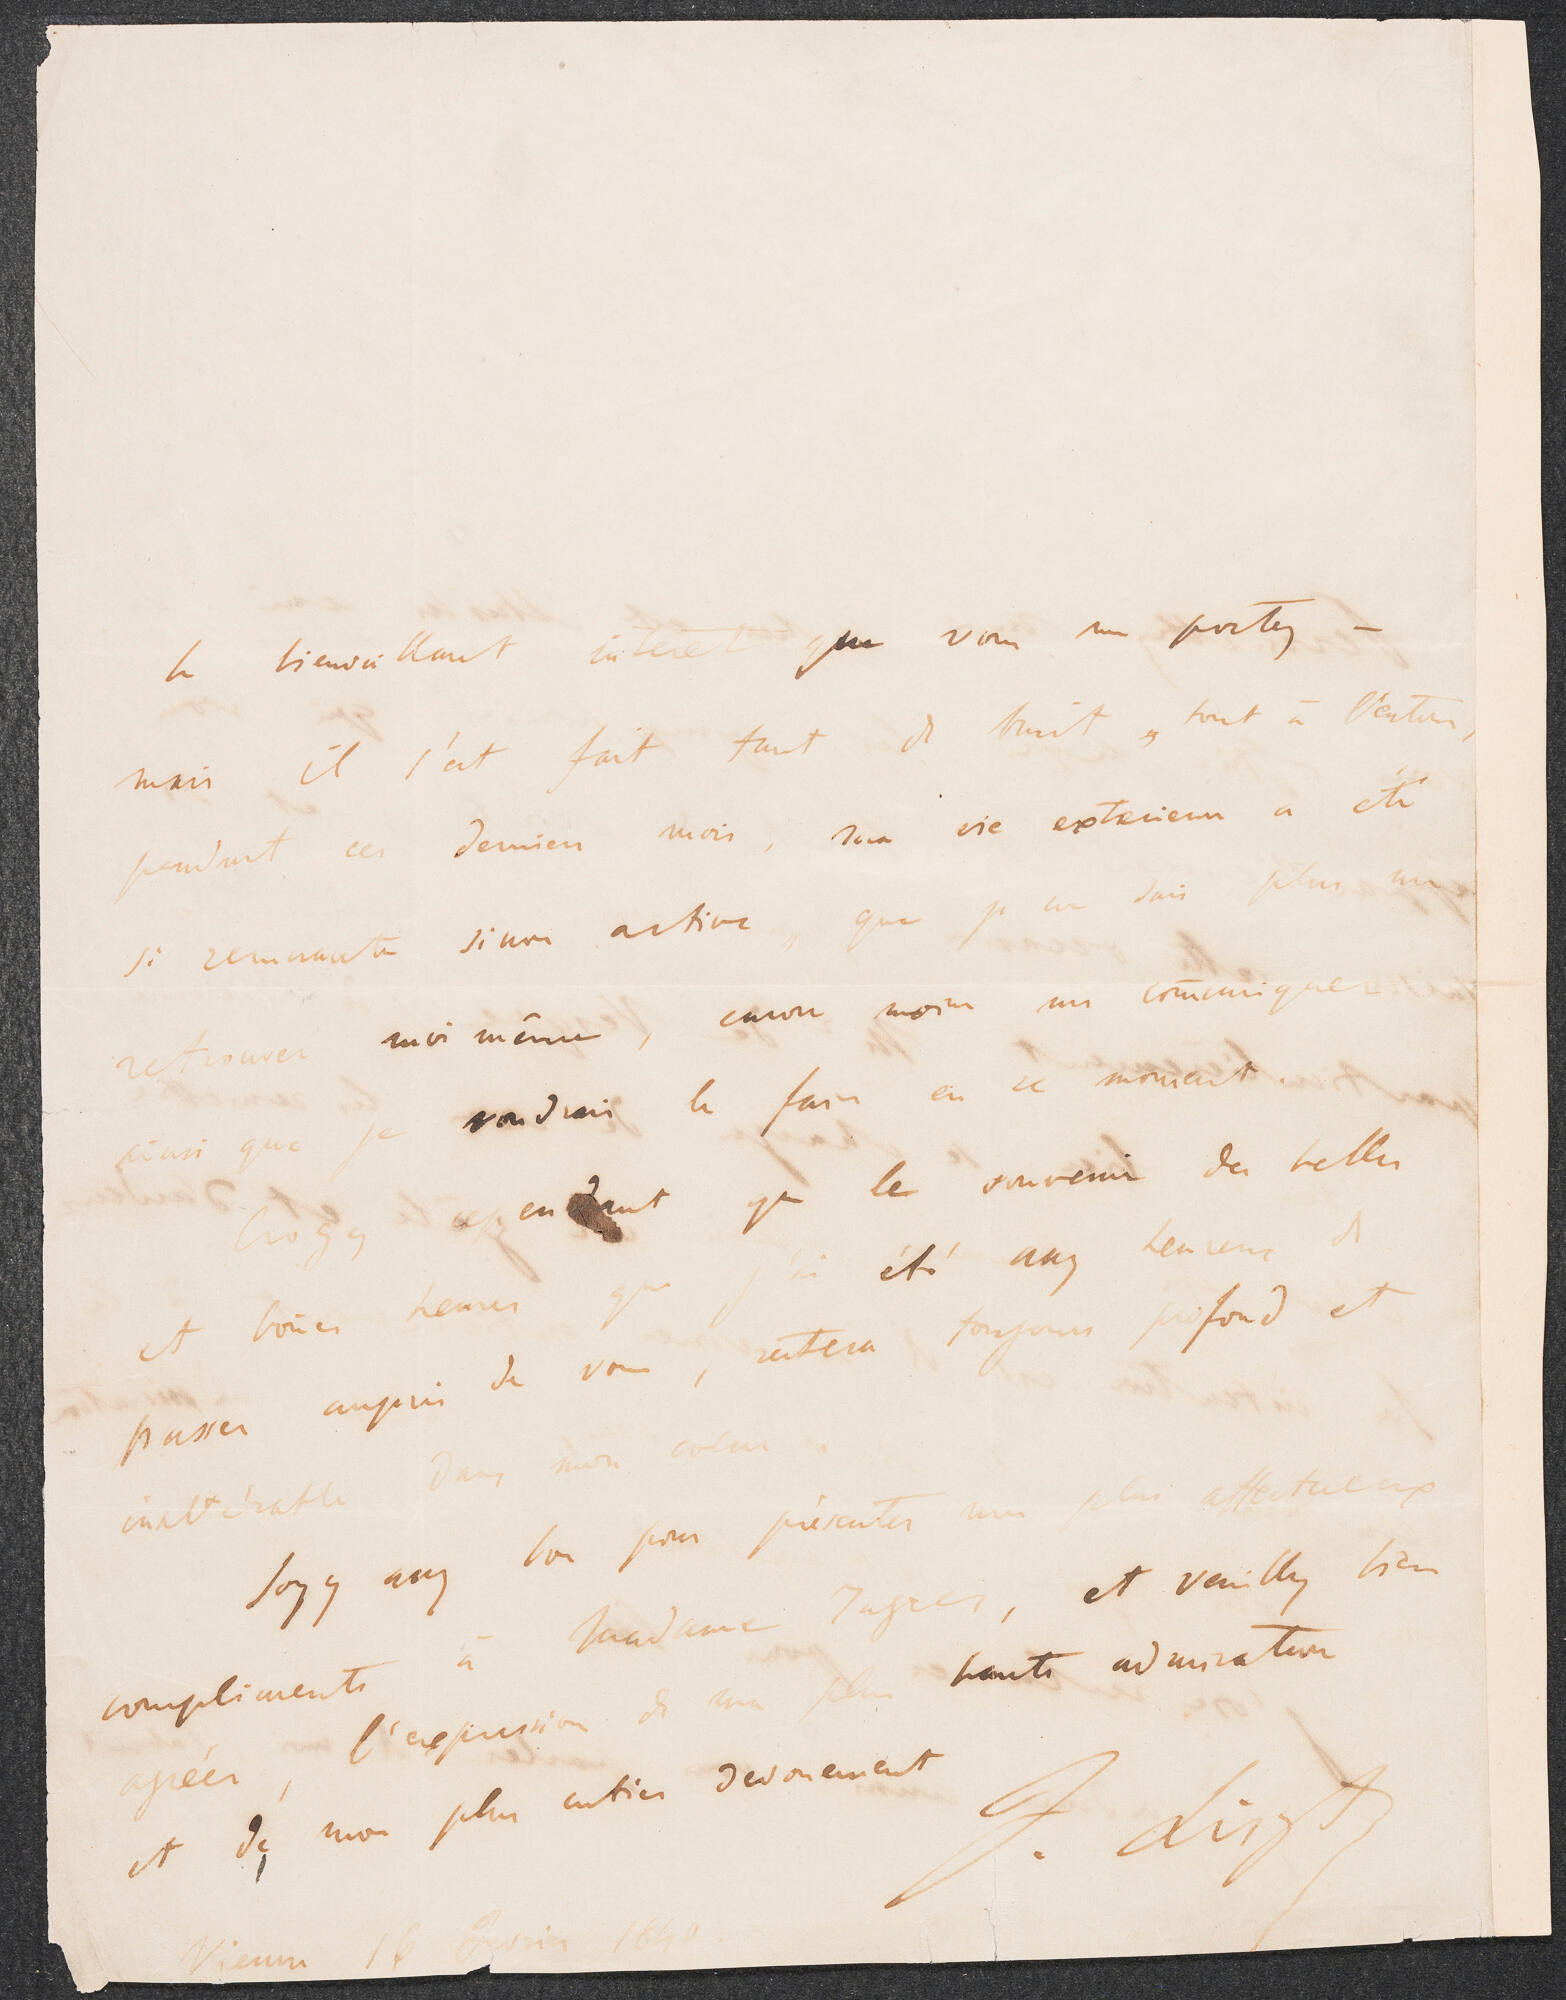 le bienveillant intérêt que vous me portez –
mais il s'est fait tant de bruit, tout à l'entour,
pendant ces derniers mois, ma vie exterieure a été
si remuante sinon active, que je ne sais plus me
retrouver moi même, encore moins me com̄uniquer
ainsi que je voudrais le faire en ce moment.
Croyez cependant que le souvenir des belles
et bon̄es heures que j'ai été assez heureux de
passer auprès de vous, restera toujours profond et
inaltérable dans mon coeur.
Soyez assez bon pour présenter mes plus affectueux
compliments à Madame Ingres, et veuillez bien
agréer, l'expression de ma plus haute admiration
et de mon plus entier devouement
F. Liszt
Vienne 16 Fevrier 1840.